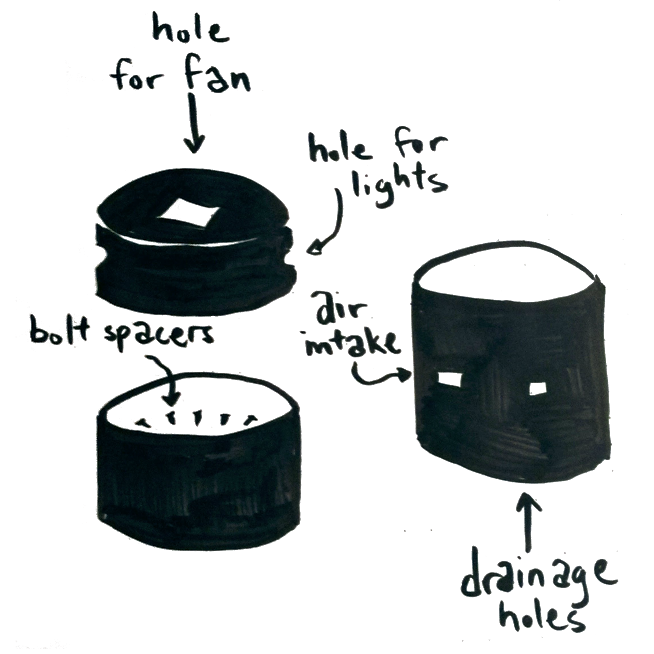 hole
for fan
hole for
lights
bolt spacers
air
intake
drainage
holes